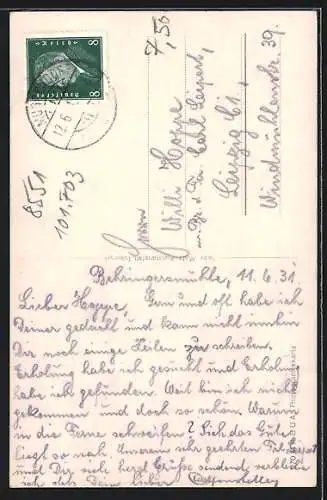 7,50
8551
101.703
Herrn
Willi Hoppe
Leipzig C1,
Windmühlenstr. 39.
Behringersmühle, 11.6.31.
Lieber Hoppe, Gern und oft habe ich
Deiner gedacht und kann nicht umhin
Dir noch einige Zeilen zu schreiben.
Erholung habe ich gesucht und Erholung
habe ich gefunden. Weit bin ich nicht
gekommen und doch so schön. Warum
in die Ferne schweifen? Sieh das Gute
liegt so nah. Unserem sehr geehrten
und Dir viele herzl. Grüße sendend verbleibe
ich stets Dein lieber